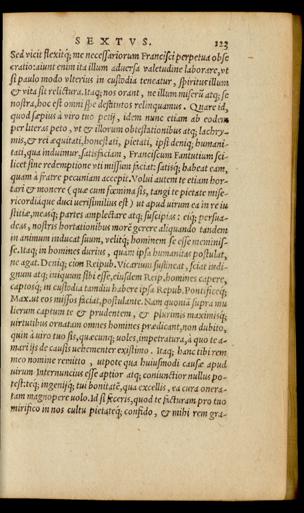 SEXTVS. 123
Sed vicit flexitq; me necessariorum Francisci perpetua obse
cratio: aiunt enim ita illum aduersa valetudine laborare, vt
si paulo modo vlterius in custodia teneatur, spiritus illum
& vita sit relictura. Itaq; nos orant, ne illum miserū atq; se
nostra, hoc est omni spe destitutos relinquamus. Quare id,
quod sæpius à viro tuo petij, idem nunc etiam ab eodem
per literas peto, vt & illorum obtestationibus atq; lachry-
mis, & rei æquitati, honestati, pietati, ipsi deniq; humani-
tati, qua induimur, satisfaciam, Franciscum Fantutium sci-
licet sine redemptione vti missum faciat: satisq; habeat eam,
quam à fratre pecuniam accepit. Volui autem te etiam hor-
tari & monere (quæ cum fœmina sis, tangi te pietate mise-
ricordiáque duci uerisimilius est) ut apud uirum ea in re iu
stitiæ, measq; partes amplectare atq; suscipias: eiq; persua-
deas, nostris hortationibus morē gerere aliquando tandem
in animum inducat suum, velitq; hominem se esse meminis-
se. Itaq; in homines durius, quam ipsa humanitas postulat,
ne agat. Deniq; cùm Reipub. Vicarium sustineat, sciat indi-
gnum atq; iniquum sibi esse, eiusdem Resp. homines capere,
captosq; in custodia tamdiu habere ipsa Repub. Pontificeq;
Max. ut eos missos faciat, postulante. Nam quoniā supra mu
lierum captum te & prudentem, & plurimis maximisq;
uirtutibus ornatam omnes homines prædicant, non dubito,
quin à uiro tuo sis, quæcunq; uoles, impetratura, à quo te a-
mari ijs de causis uehementer existimo. Itaq; hanc tibi rem
meo nomine remitto, utpote qua huiusmodi causæ apud
uirum Internuncius esse aptior atq; coniunctior nullus po-
test: teq; ingenijq; tui bonitatē, qua excellis, ea cura onera-
tam magnopere uolo. Id si feceris, quod te facturam pro tuo
mirifico in nos cultu pietateq; confido, & mihi rem gra-